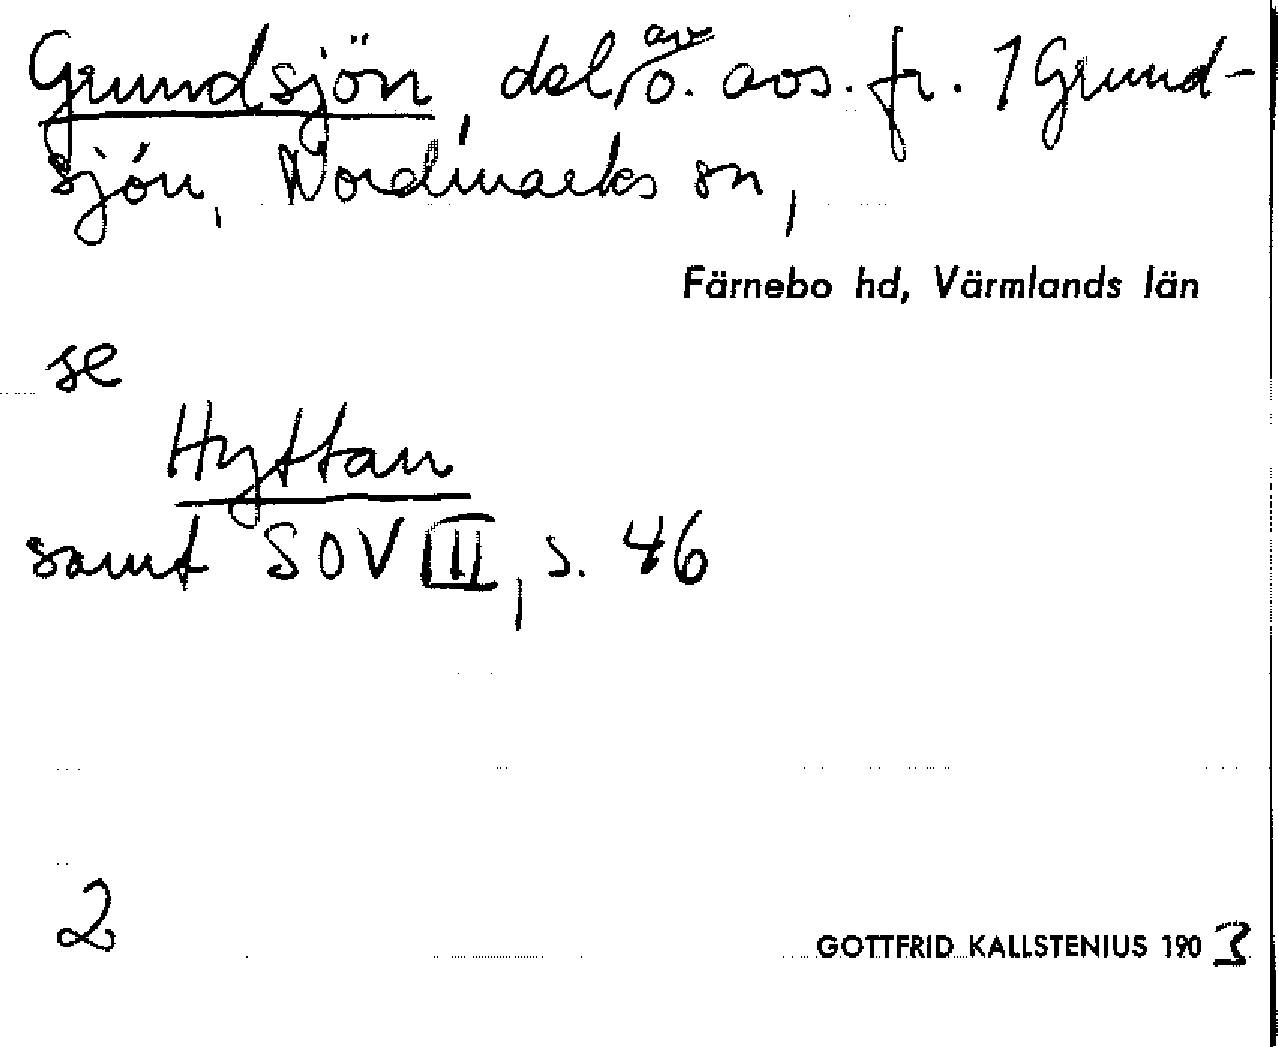 Grundsjön, del av ö. avs. fr. 1 Grund-
sjön, Nordmarks sn,
Färnebo hd, Värmlands län
se
Hyttan
samt SOV III, s. 46
2
GOTTFRID KALLSTENIUS 1903